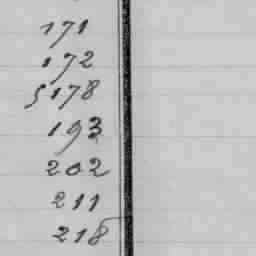 171
172
5178
193
202
211
218